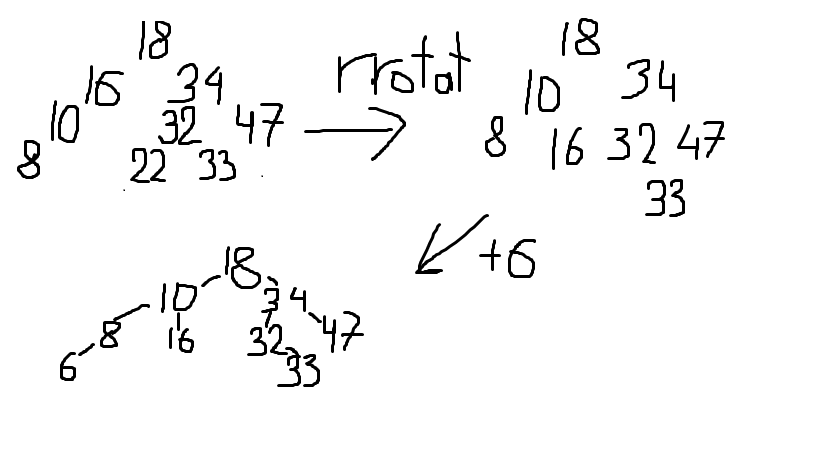 18
16 34
10 32 47
8 22 33
rrotat
18
10 34
8 16 32 47
33
+6
18
10 34
8 16 32 47
6 33